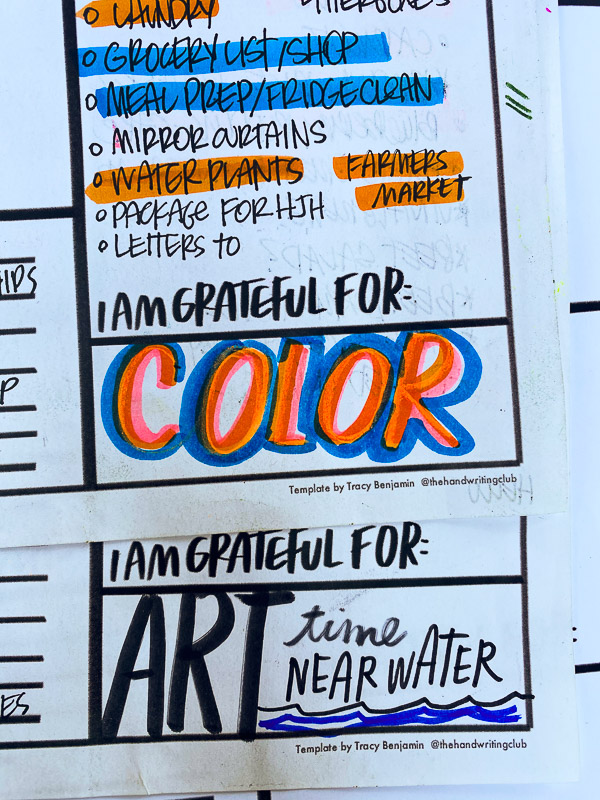 LAUNDRY
GROCERY LIST/SHOP
MEAL PREP/FRIDGE CLEAN
MIRROR CURTAINS
WATER PLANTS
FARMERS
MARKET
PACKAGE FOR HJH
LETTERS TO
I AM GRATEFUL FOR:
COLOR
Template by Tracy Benjamin @thehandwritingclub
I AM GRATEFUL FOR:
ART time
NEAR WATER
Template by Tracy Benjamin @thehandwritingclub